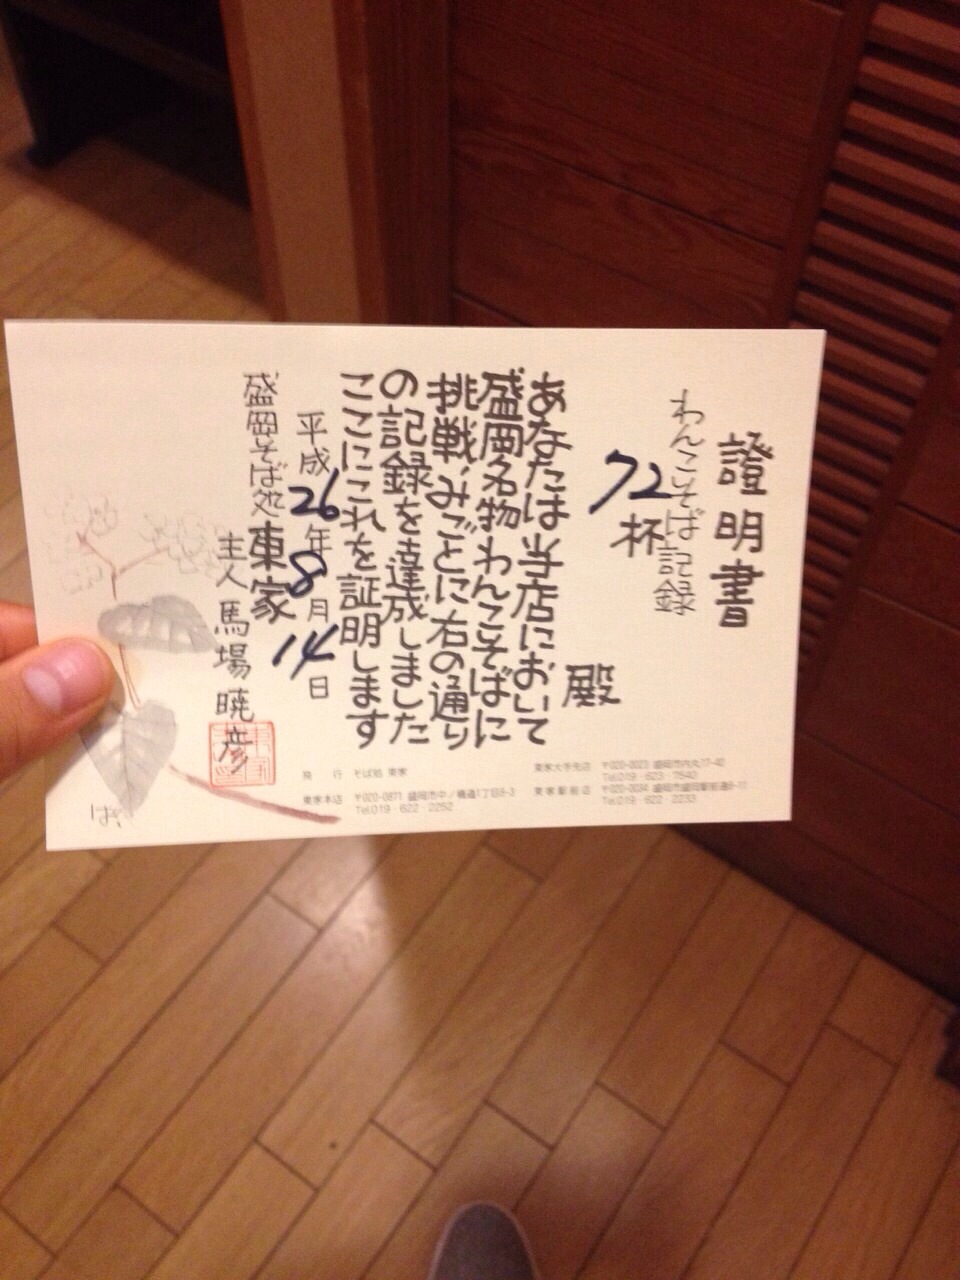 證明書
わんこそば記録
72杯
殿
あなたは当店において
盛岡名物わんこそばに
挑戦、みごとに右の通り
の記録を達成しました
ここにこれを証明します
平成26年8月14日
盛岡そば処 東家
主人 馬場暁彦
発 行 そば処 東家
東家本店 〒020-0871 盛岡市中ノ橋通1丁目8-3
Tel.019・622・2252
東家大手先店 〒020-0023 盛岡市内丸17-40
Tel.019・623・7540
東家駅前店 〒020-0034 盛岡市盛岡駅前通8-11
Tel.019・622・2233